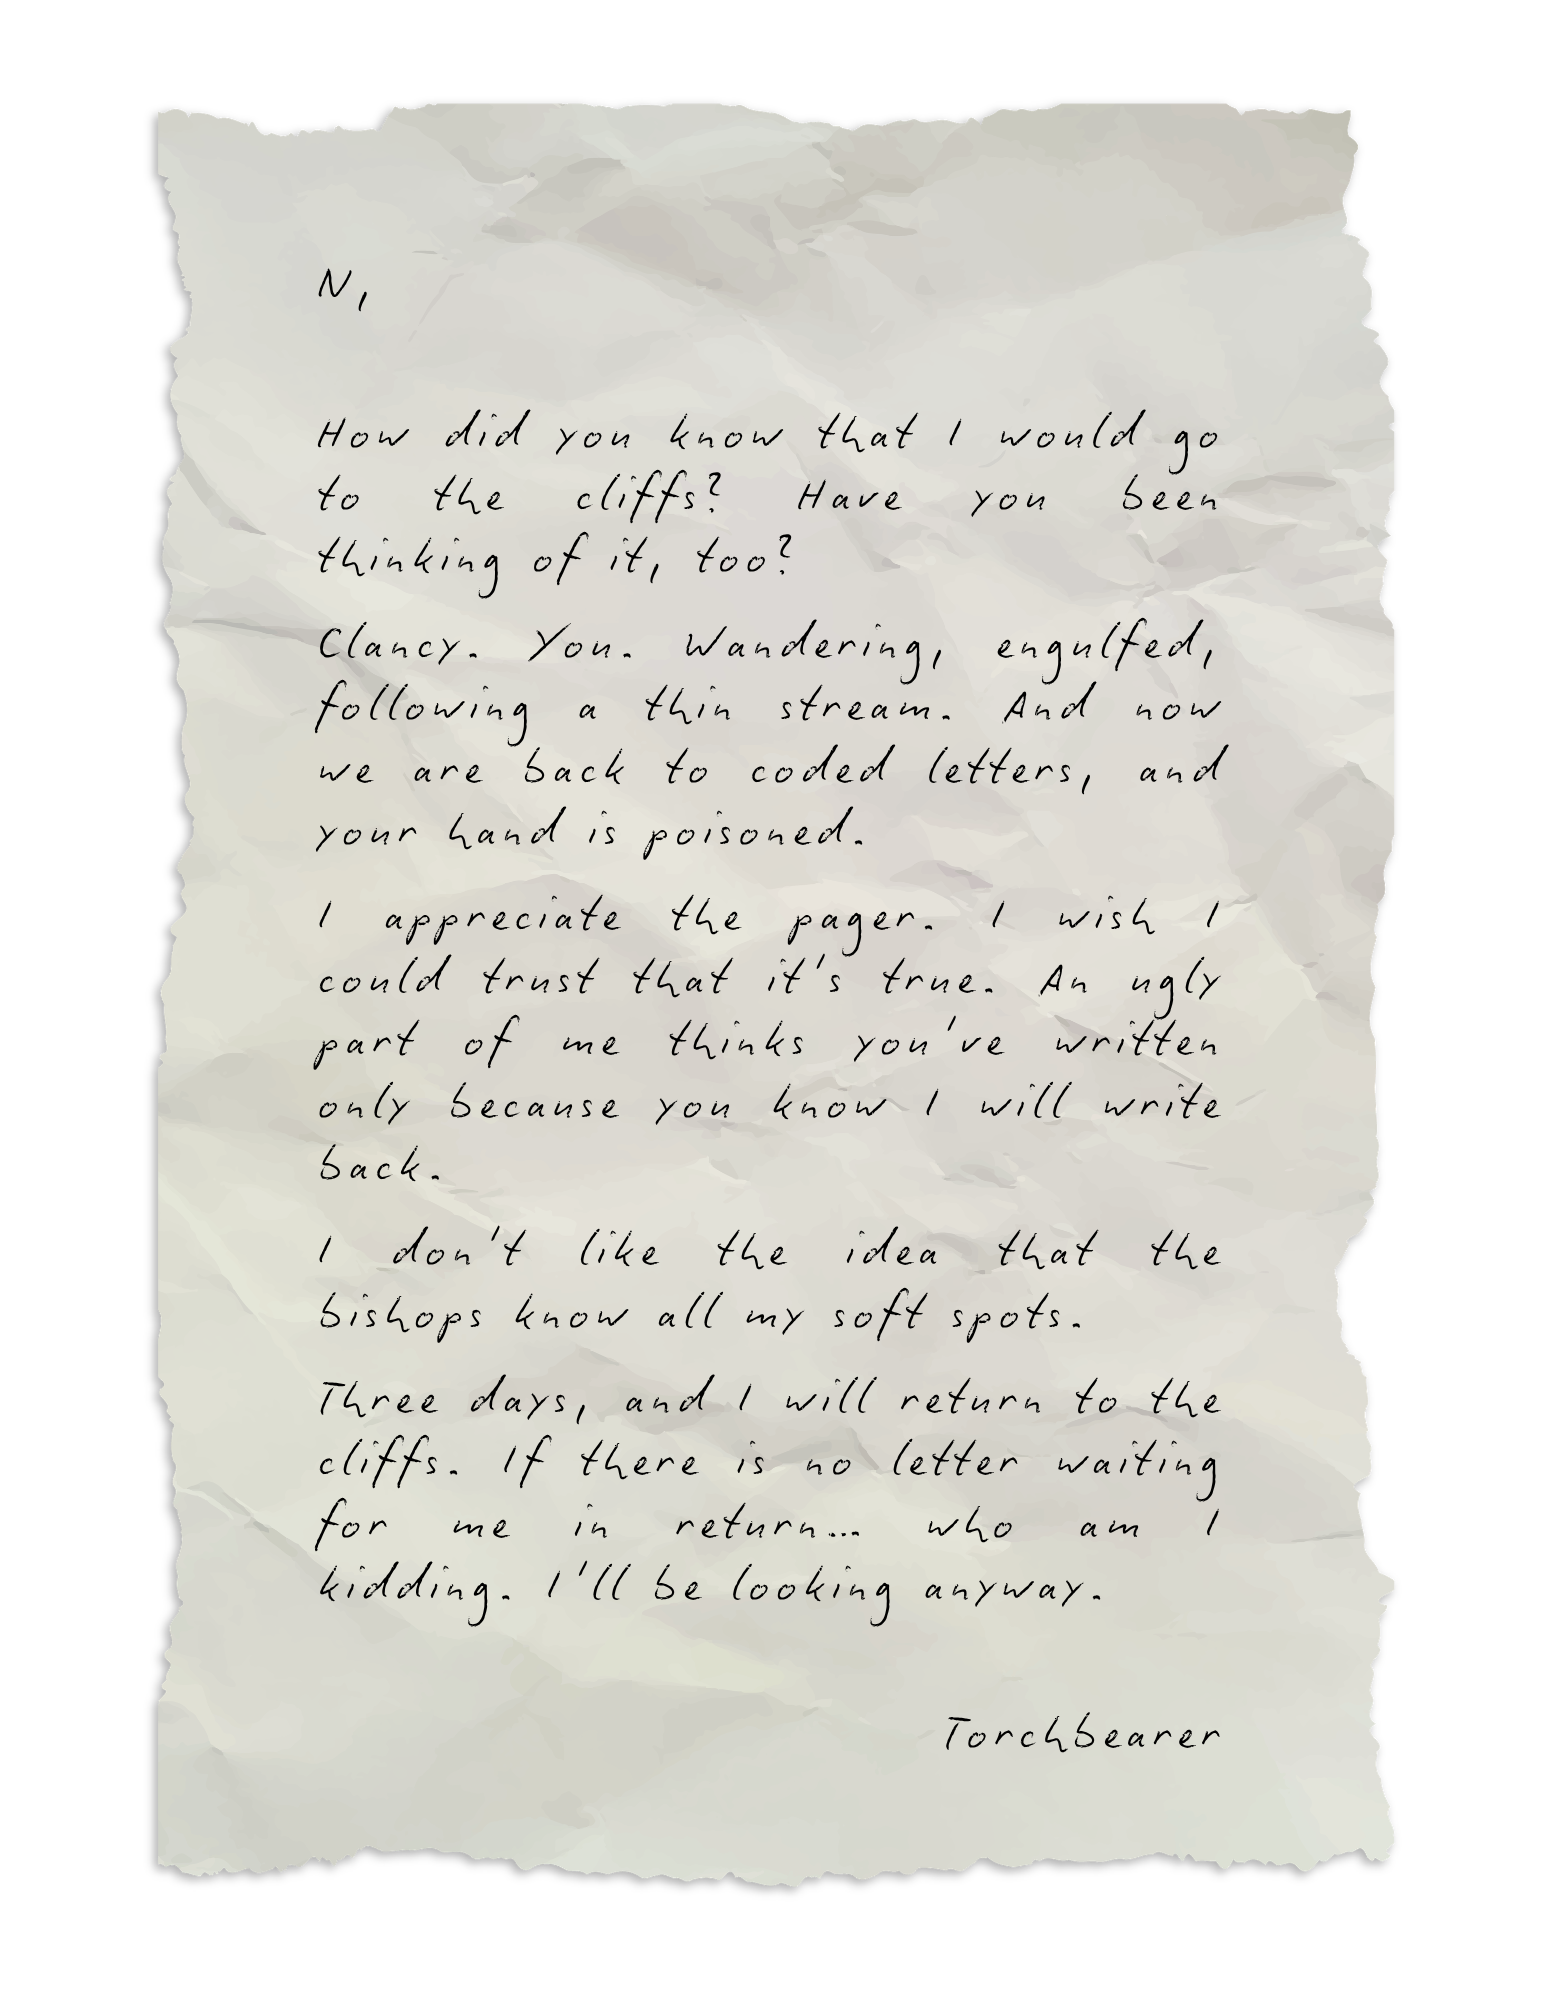 N,
How did you know that I would go
to the cliffs? Have you been
thinking of it, too?
Clancy. You. Wandering, engulfed,
following a thin stream. And now
we are back to coded letters, and
your hand is poisoned.
I appreciate the pager. I wish I
could trust that it's true. An ugly
part of me thinks you've written
only because you know I will write
back.
I don't like the idea that the
bishops know all my soft spots.
Three days, and I will return to the
cliffs. If there is no letter waiting
for me in return... who am I
kidding. I'll be looking anyway.
Torchbearer